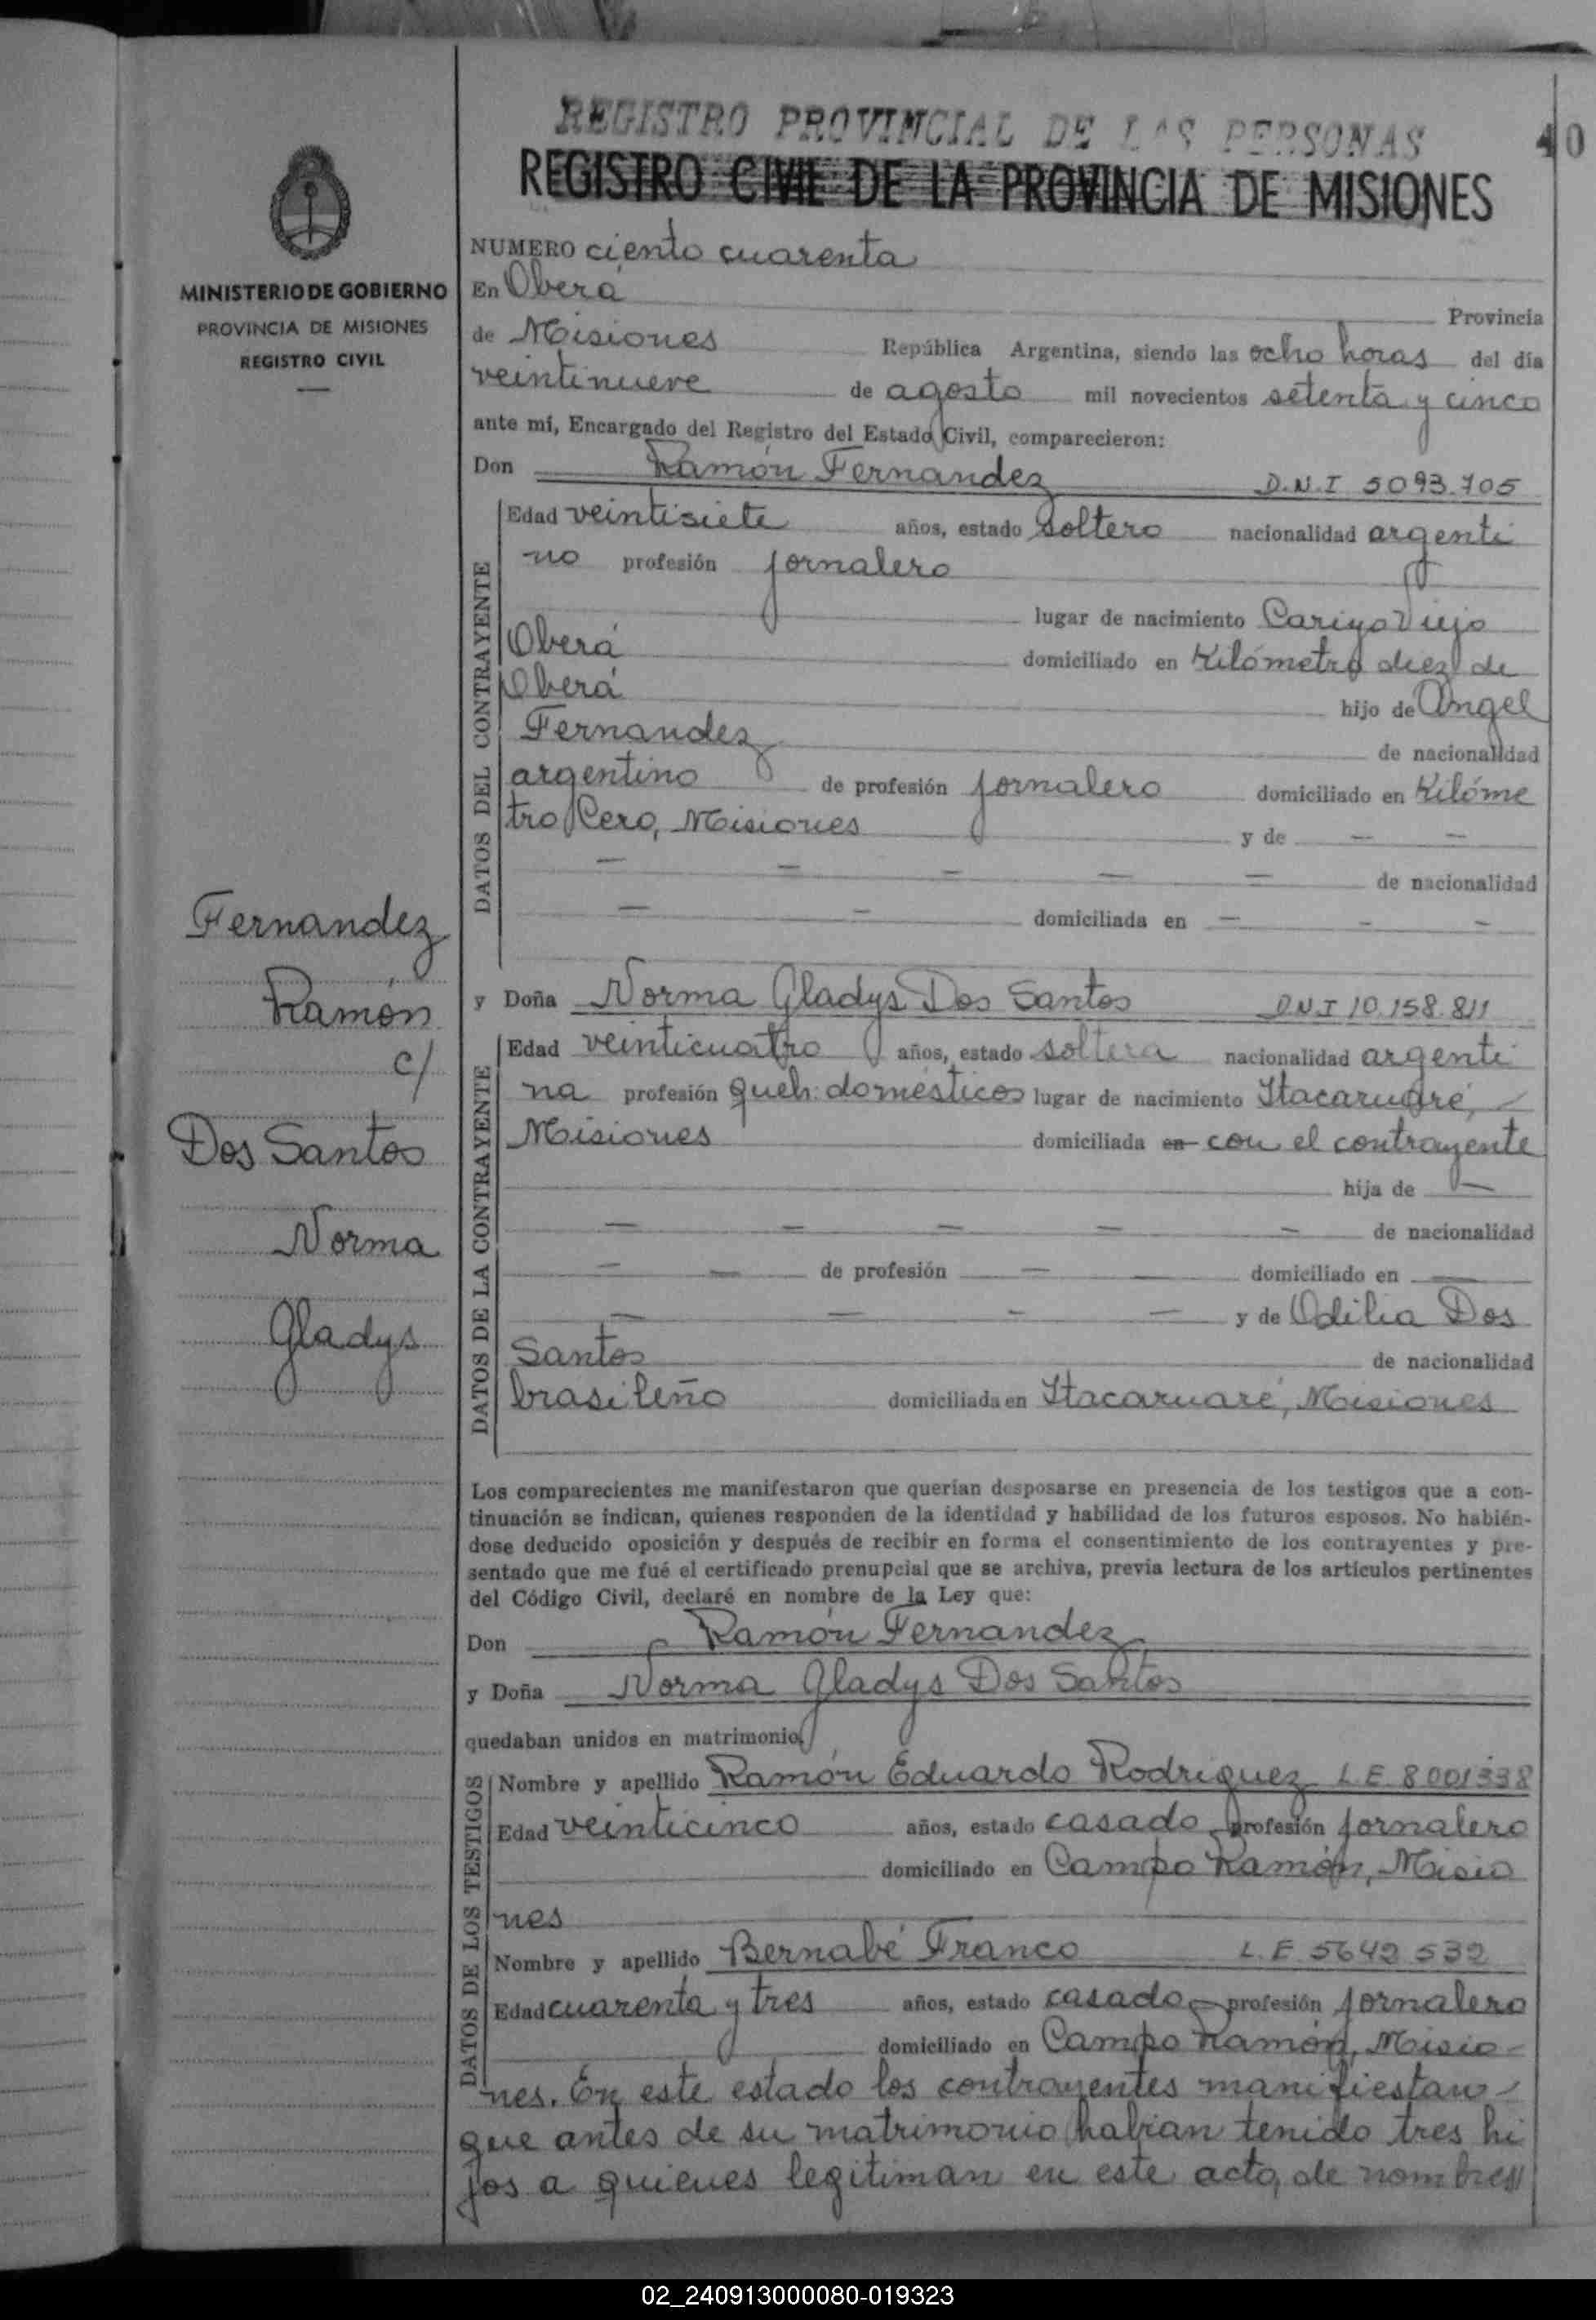 REGISTRO PROVINCIAL DE LAS PERSONAS
40
REGISTRO CIVIL DE LA PROVINCIA DE MISIONES
MINISTERIO DE GOBIERNO
PROVINCIA DE MISIONES
REGISTRO CIVIL
Fernandez
Ramón
c/
Dos Santos
Norma
Gladys
NUMERO ciento cuarenta
En Oberá
Provincia
de Misiones República Argentina, siendo las ocho horas del día
veintinueve de agosto mil novecientos setenta y cinco
ante mí, Encargado del Registro del Estado Civil, comparecieron:
Don Ramón Fernandez D.N.I 5093.705
DATOS DEL CONTRAYENTE
Edad veintisiete años, estado soltero nacionalidad argenti
no profesión jornalero
lugar de nacimiento Viejo
Oberá domiciliado en Kilómetro diez de
Oberá hijo de Angel
Fernandez de nacionalidad
argentino de profesión jornalero domiciliado en Kilóme
tro Cero, Misiones y de — —
— — — — — de nacionalidad
— — domiciliada en — - -
y Doña Norma Gladys Dos Santos D.N.I 10.158.811
DATOS DE LA CONTRAYENTE
Edad veinticuatro años, estado soltera nacionalidad argenti
na profesión queh. domésticos lugar de nacimiento Itacaruaré,
Misiones domiciliada en con el contrayente
hija de —
— — — — — de nacionalidad
— — de profesión — — domiciliado en —
— — — — y de Odilia Dos
Santos de nacionalidad
brasileño domiciliada en Itacaruaré, Misiones
Los comparecientes me manifestaron que querían desposarse en presencia de los testigos que a con-
tinuación se indican, quienes responden de la identidad y habilidad de los futuros esposos. No habién-
dose deducido oposición y después de recibir en forma el consentimiento de los contrayentes y pre-
sentado que me fué el certificado prenupcial que se archiva, previa lectura de los artículos pertinentes
del Código Civil, declaré en nombre de la Ley que:
Don Ramón Fernandez
y Doña Norma Gladys Dos Santos
quedaban unidos en matrimonio.
DATOS DE LOS TESTIGOS
Nombre y apellido Ramón Eduardo Rodriguez L.E. 8001338
Edad veinticinco años, estado casado profesión jornalero
domiciliado en Campo Ramón, Misio
nes
Nombre y apellido Bernabé Franco L.E 5642 532
Edad cuarenta y tres años, estado casado profesión jornalero
domiciliado en Campo Ramón, Misio-
nes. En este estado los contrayentes manifiestan
que antes de su matrimonio habian tenido tres hi
jos a quienes legitiman en este acto, de nombres
02_240913000080-019323